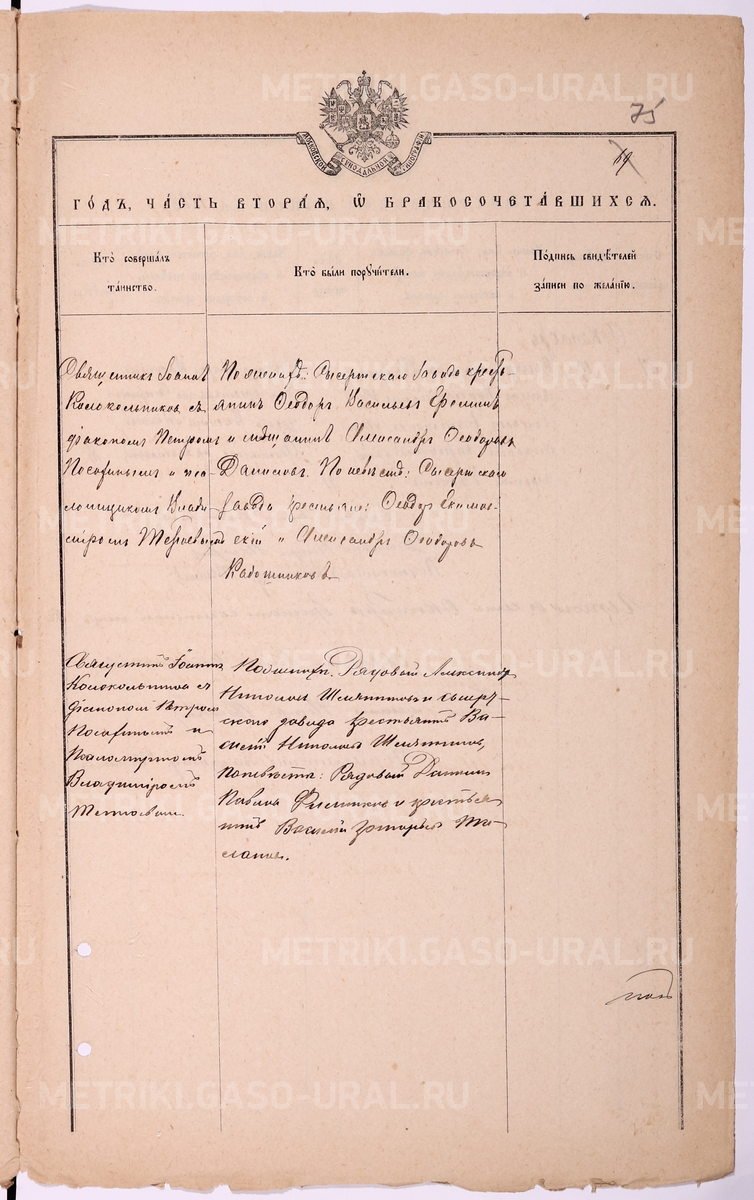 METRIKI.GASO-URAL.RU
75
69
МОСКОВСКОЙ СѴНОДАЛЬНОЙ ТИПОГРАФІИ
ГО́ДЪ, ЧА́СТЬ ВТОРА́Я, Ѡ БРАКОСОЧЕТА́ВШИХСЯ.
Кто̀ соверша́лъ
та́инство.
Кто̀ бы́ли порꙋчи́тели.
По́дпись свидѣ́телей
за́писи по жела́нїю.
Священникъ Іоаннъ
Колокольниковъ съ
діакономъ Петромъ
и пса-
ломщикомъ Влади-
міромъ
По женихѣ: Сысертскаго завода кресть-
янинъ Ѳеодоръ Васильевъ Ереминъ
и мѣщанинъ Александръ Ѳеодоровъ
Даниловъ. По невѣстѣ: Сысертскаго
завода крестьяне: Ѳеодоръ Екимов-
скій и Александръ Ѳеодоровъ
Кадошниковъ
Священникъ Іоаннъ
Колокольниковъ съ
діакономъ Петромъ
и
Псаломщикомъ
Владиміромъ
По женихѣ: Рядовый Александръ
Николаевъ и сысерт-
скаго завода крестьянинъ Ва-
силій Николаевъ
по невѣстѣ: Рядовый Даніилъ
Павловъ и крестья-
нинъ Василій Григорьевъ Ма-
слаковъ.
METRIKI.GASO-URAL.RU